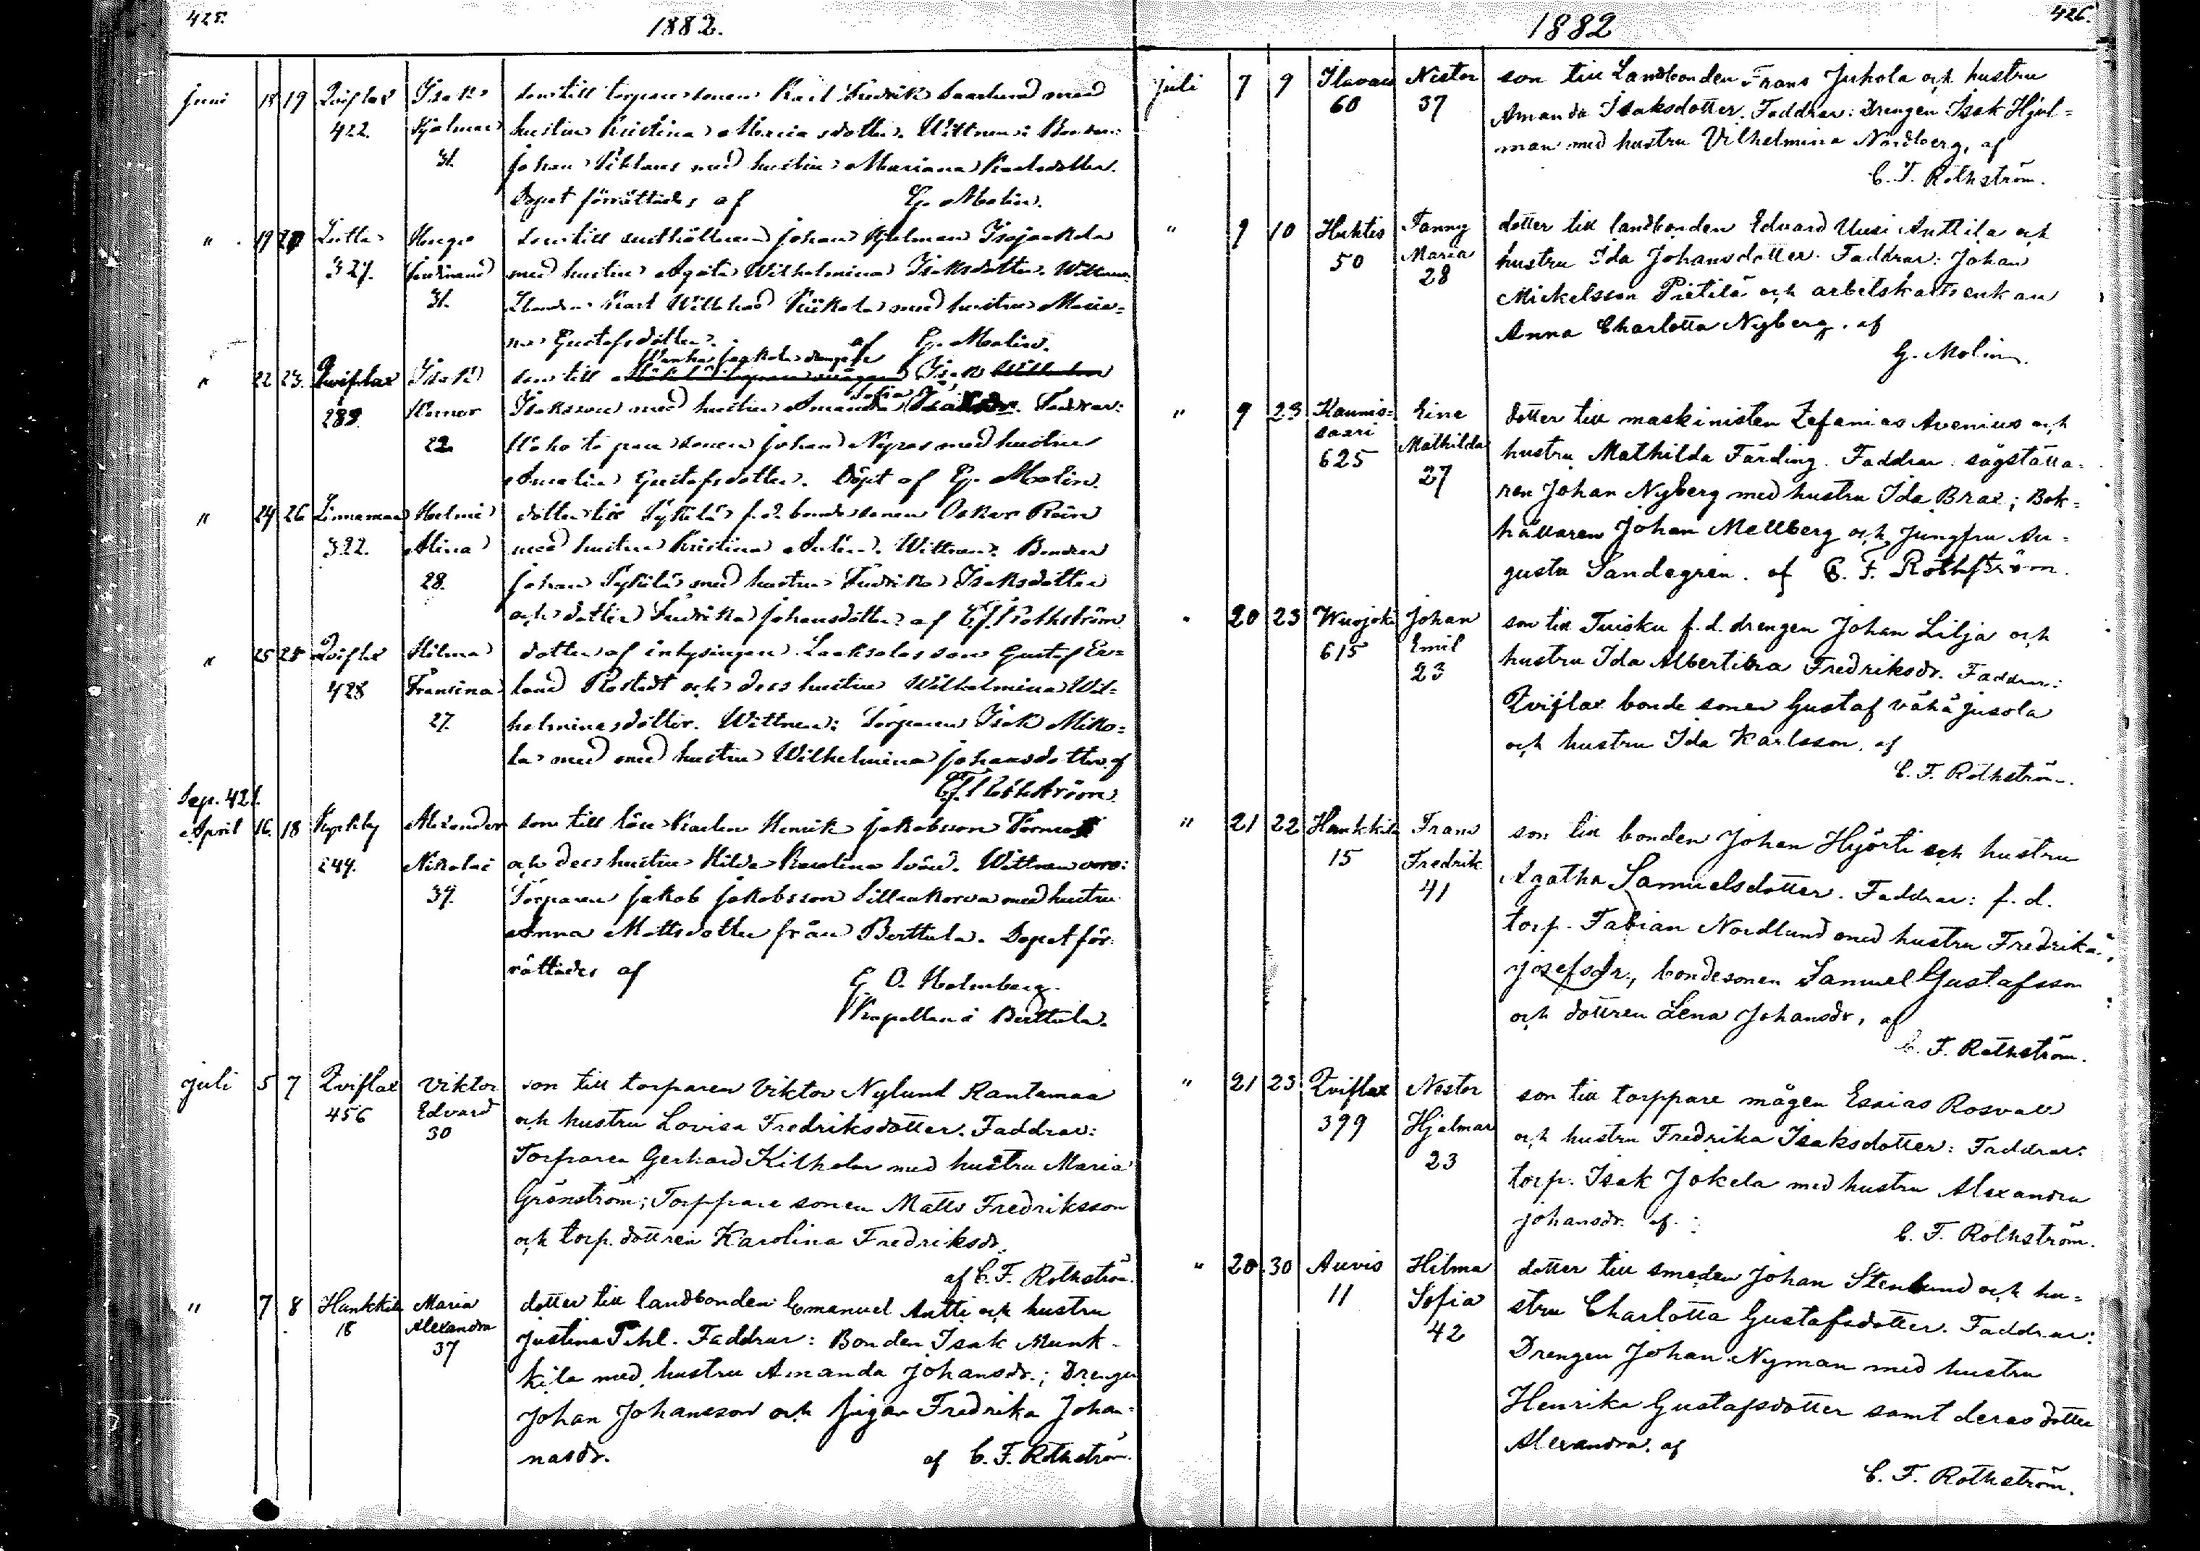 425.
1882.
juni 18 19 Qviflax Isak son till torparesonen Karl Fredrik Saarlund med
422. Hjalmar hustru Kristina Mariasdotter. Wittnen: Bonden
31. Johan Siklaus med hustru Mariana Karlsdotter.
Dopet förrättades af G. Molin.
" 19 Lutta Hugo son till inhöllnen Johan Hjelman Isojaakola
327. Ferdinand med hustru Agata Wilhelmina Isaksdotter. Wittnen
31. Karl Willehad Kiikola med hustru Maria-
na Gustafsdotter. af G. Molin.
Wanha Jaakola drengen
" 22 23. Qviflax Isak son till Isak
Sofia
289. Werner Isaksson med hustru Amanda Faddrar:
22 torparesonen Johan Nyros med hustru
Amalia Gustafsdotter. Döpt af G. Molin.
" 24 26 Linnamaa Helmi dotter till Sykilä f.d. bondesonen Oskar Rein
322. Alina med hustru Kristina Wittnen: Bonden
28. Johan Sykilä med hustru Fredrika Isaksdotter
och dotter Fredrika Johansdotter af C. F. Rothström
" 25 28 Qviflax Hilma dotter af inhysingen Laaksalas son Gustaf Er-
428 Fransina land Rostedt och dess hustru Wilhelmina Wil-
27. helminasdotter. Wittnen: Torparen Isak Miko-
la med med hustru Wilhelmina Johansdotter. af
C. F. Rothström.
Sep. 421.
April 16. 18 Kyrkby Alexander son till löse Karlen Henrik Jakobsson Tornroos
244. Nikolai och dess hustru Hilda Karolina Wittnen voro:
39. Torparen Jakob Jakobsson Sillankorva med hustru
Anna Mattsdotter från Berttula. Dopet för-
rättades af G. O. Holmberg.
V. Kapellan i Berttula.
juli 5 7 Qviflax Viktor son till torparen Viktor Nylund Rantamaa
456 Edvard och hustru Lovisa Fredriksdotter. Faddrar:
30 Torparen Gerhard Kilholm med hustru Maria
Grönström; Torppare sonen Matts Fredriksson
och torp. dottren Karolina Fredriksdr.
af C. F. Rothström.
" 7 8 Hunkkila Maria dotter till landbonden Emanuel Antti och hustru
18 Alexandra Justina Pihl. Faddrar: Bonden Isak Munk-
37 kila med hustru Amanda Johansdr.; Drengen
Johan Johansson och pigan Fredrika Johan-
nasdr. af C. F. Rothström.
426.
1882
juli 7 9 Ilavais Nestor son till Landbonden Frans Juhola och hustru
60 37 Amanda Isaksdotter. Faddrar: Drengen Isak Hjul-
man med hustru Vilhelmina Nordberg, af
C. F. Rothström.
" 9 10 Huktis Fanny dotter till landbonden Edvard Uusi Anttila och
50 Maria hustru Ida Johansdotter. Faddrar: Johan
28 Mickelsson Pietilä och arbetskarlsenkan
Anna Charlotta Nyberg. af
G. Molin.
" 9 23 Kaunis- Eine dotter till maskinisten Zefanias Avenius och
saari Mathilda hustru Mathilda Färding. Faddrar: sågställa-
625 27 ren Johan Nyberg med hustru Ida Brax; Bok-
hållaren Johan Mellberg och Jungfru Au-
gusta Sandegren. af C. F. Rothström.
" 20 23 Wuojoki Johan son till Tuisku f.d. drengen Johan Lilja och
615 Emil hustru Ida Albertina Fredriksdr. Faddrar:
23 Qviflax bonde sonen Gustaf vähäjusola
och hustru Ida Karlsson, af
C. F. Rothström.
" 21 22 Hunkkila Frans son till bonden Johan Hyörti och hustru
15 Fredrik Agatha Samuelsdotter. Faddrar: f. d.
41 torp. Fabian Nordlund med hustru Fredrika
Josefsdr., bondesonen Samuel Gustafsson
och dottren Lena Johansdr, af
C. F. Rothström.
" 21 23 Qviflax Nestor son till torppare mågen Esaias Rosvall
399 Hjalmar och hustru Fredrika Isaksdotter: Faddrar:
23 torp. Isak Jokela med hustru Alexandra
Johansdr. af. C. F. Rothström.
" 20 30 Auvis Hilma dotter till smeden Johan Stenlund och hu-
11 Sofia stru Charlotta Gustafsdotter. Faddrar:
42 Drengen Johan Nyman med hustru
Henrika Gustafsdotter samt deras dotter
Alexandra. af
C. F. Rothström.